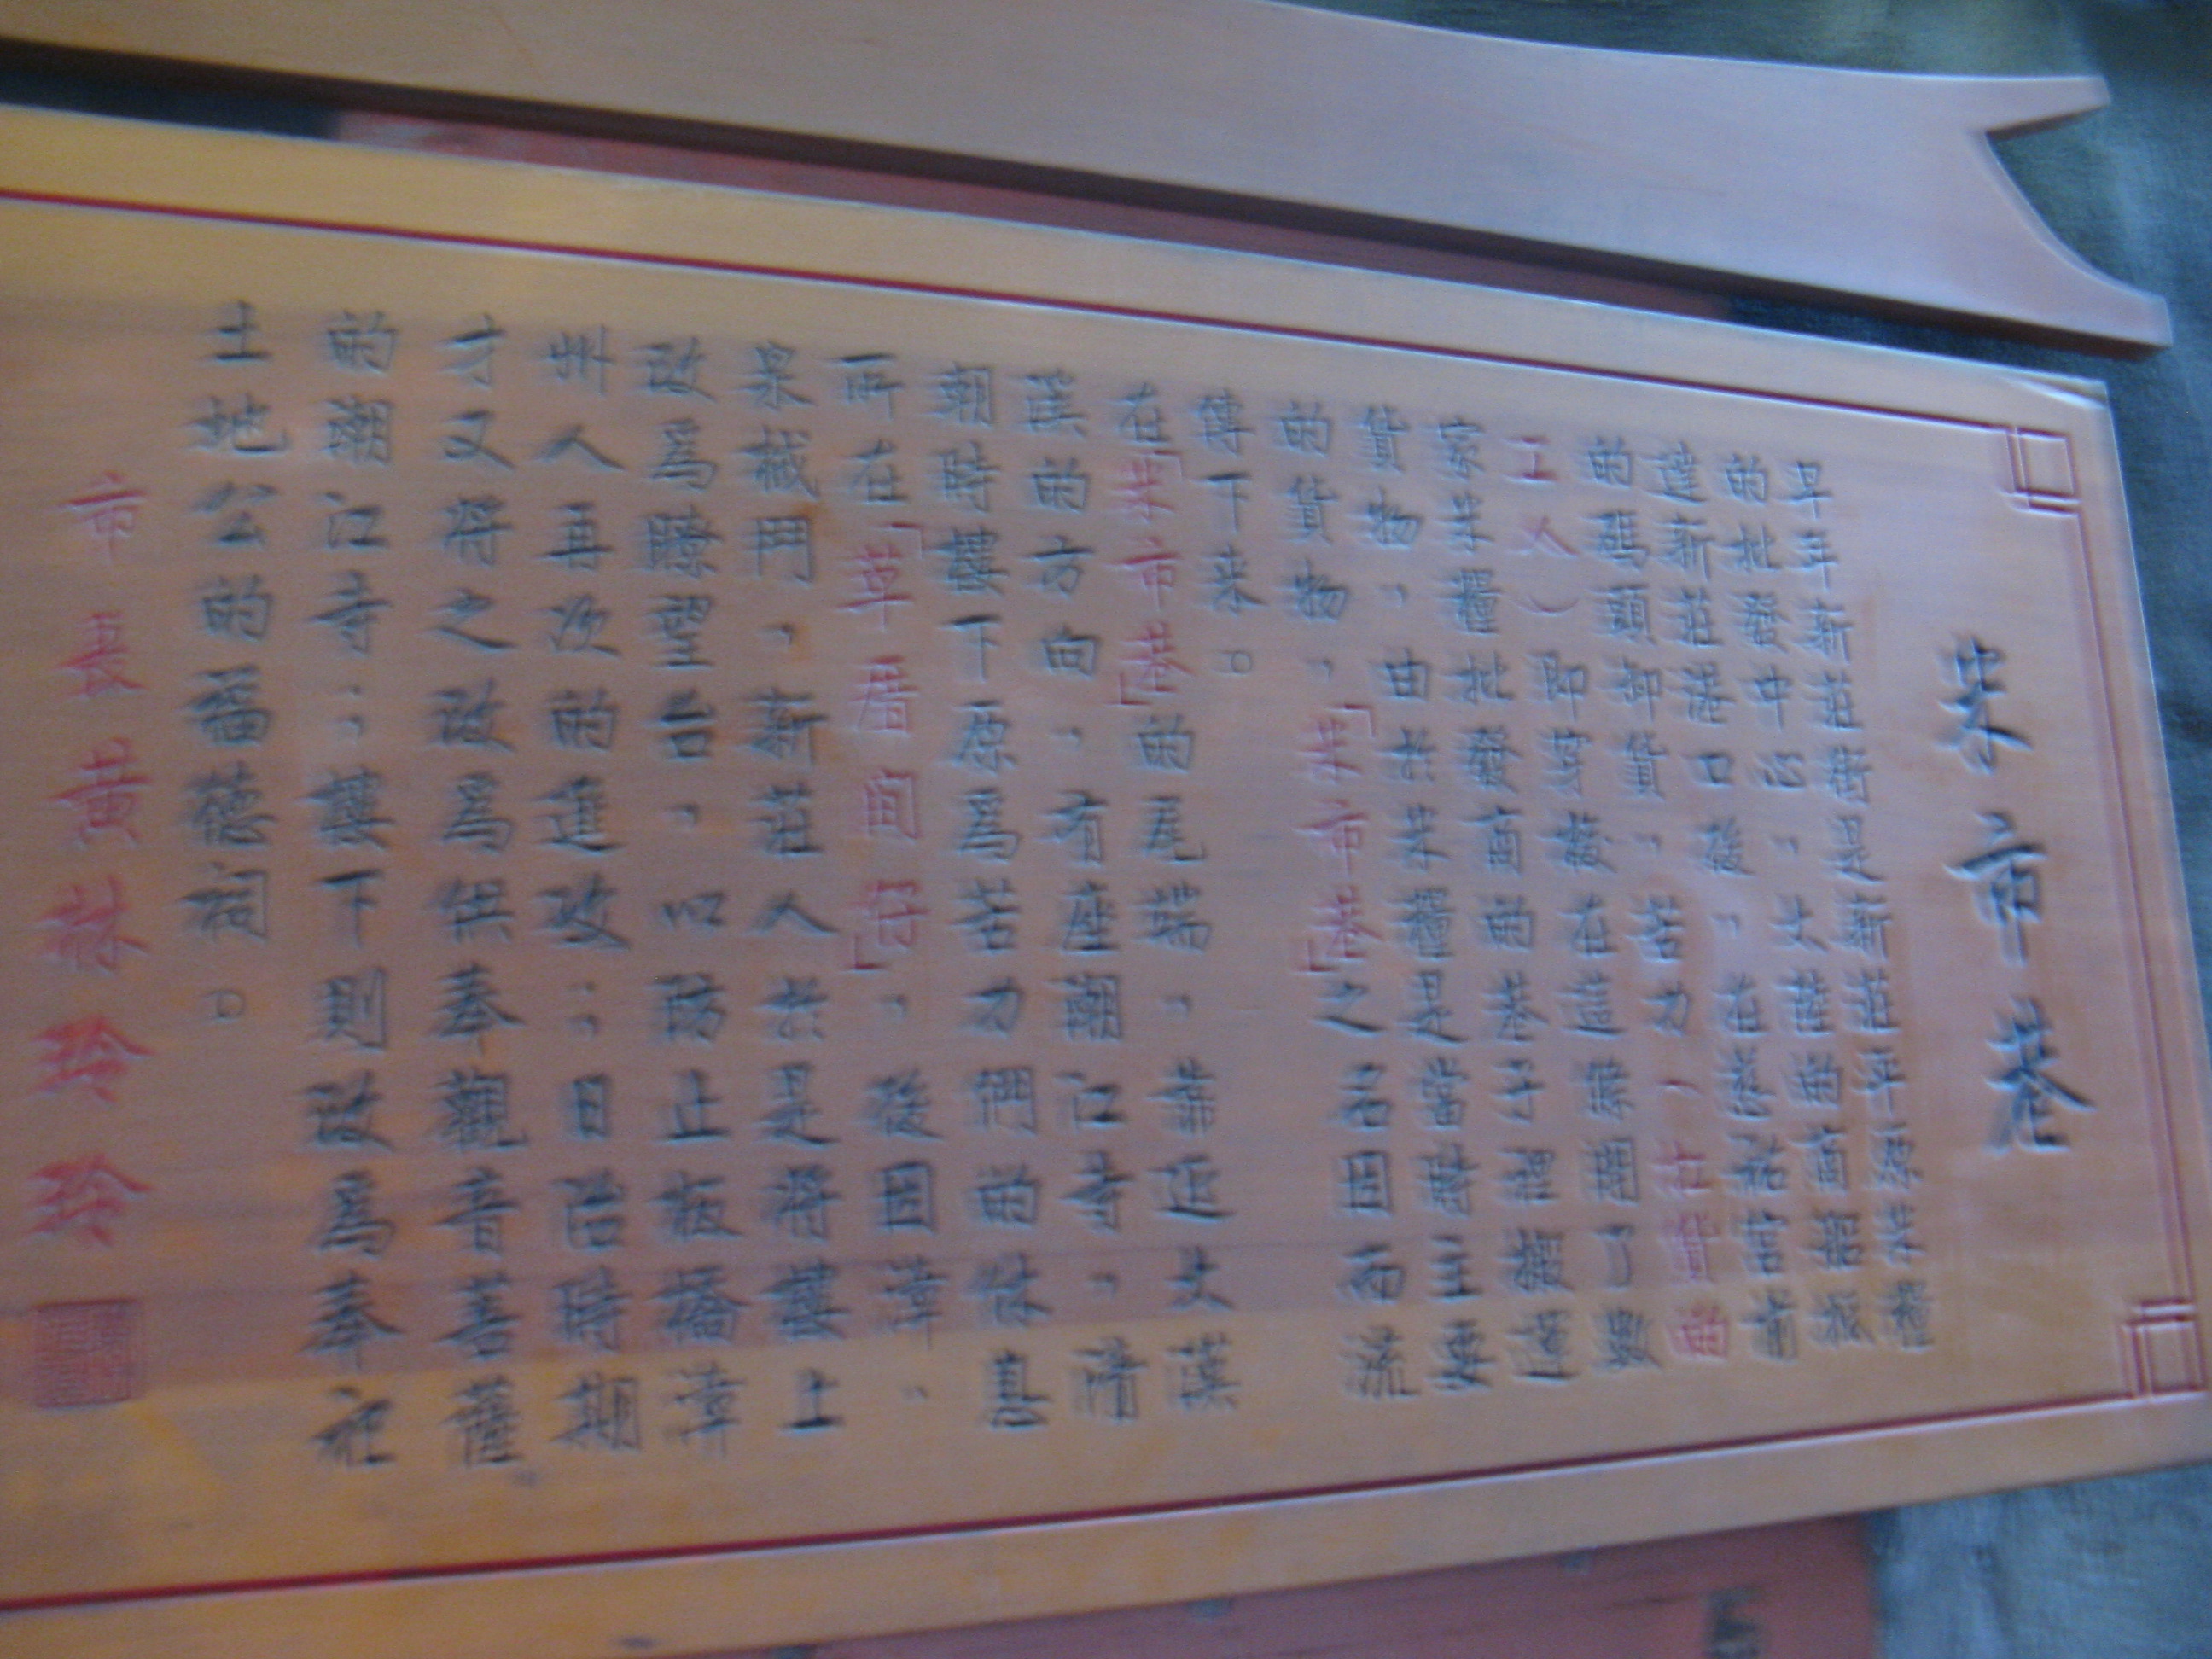 米市巷
早年新莊街是新莊平原米糧
的批發中心，大陸的商船抵
達新莊港口後，在慈祐宮前
的碼頭卸貨，苦力（扛貨的
工人）即穿梭在這條通了與
家米糧批發商的巷子裡搬運
貨物，由於米糧是當時主要
的貨物，「米市巷」之名因而流
傳下來。
在「米市巷」的尾端，靠近大漢
溪的方向，有座潮江寺，清
朝時樓下原為苦力們的休息
所在「草厝間仔」，後因漳、
泉械鬥，新莊人於是將樓上
改為瞭望台，以防止板橋漳
州人再次的進攻；日治時期
才又將之改為供奉觀音菩薩
的潮江寺；樓下則改為奉祀
土地公的福德祠。
市長黃林玲玲